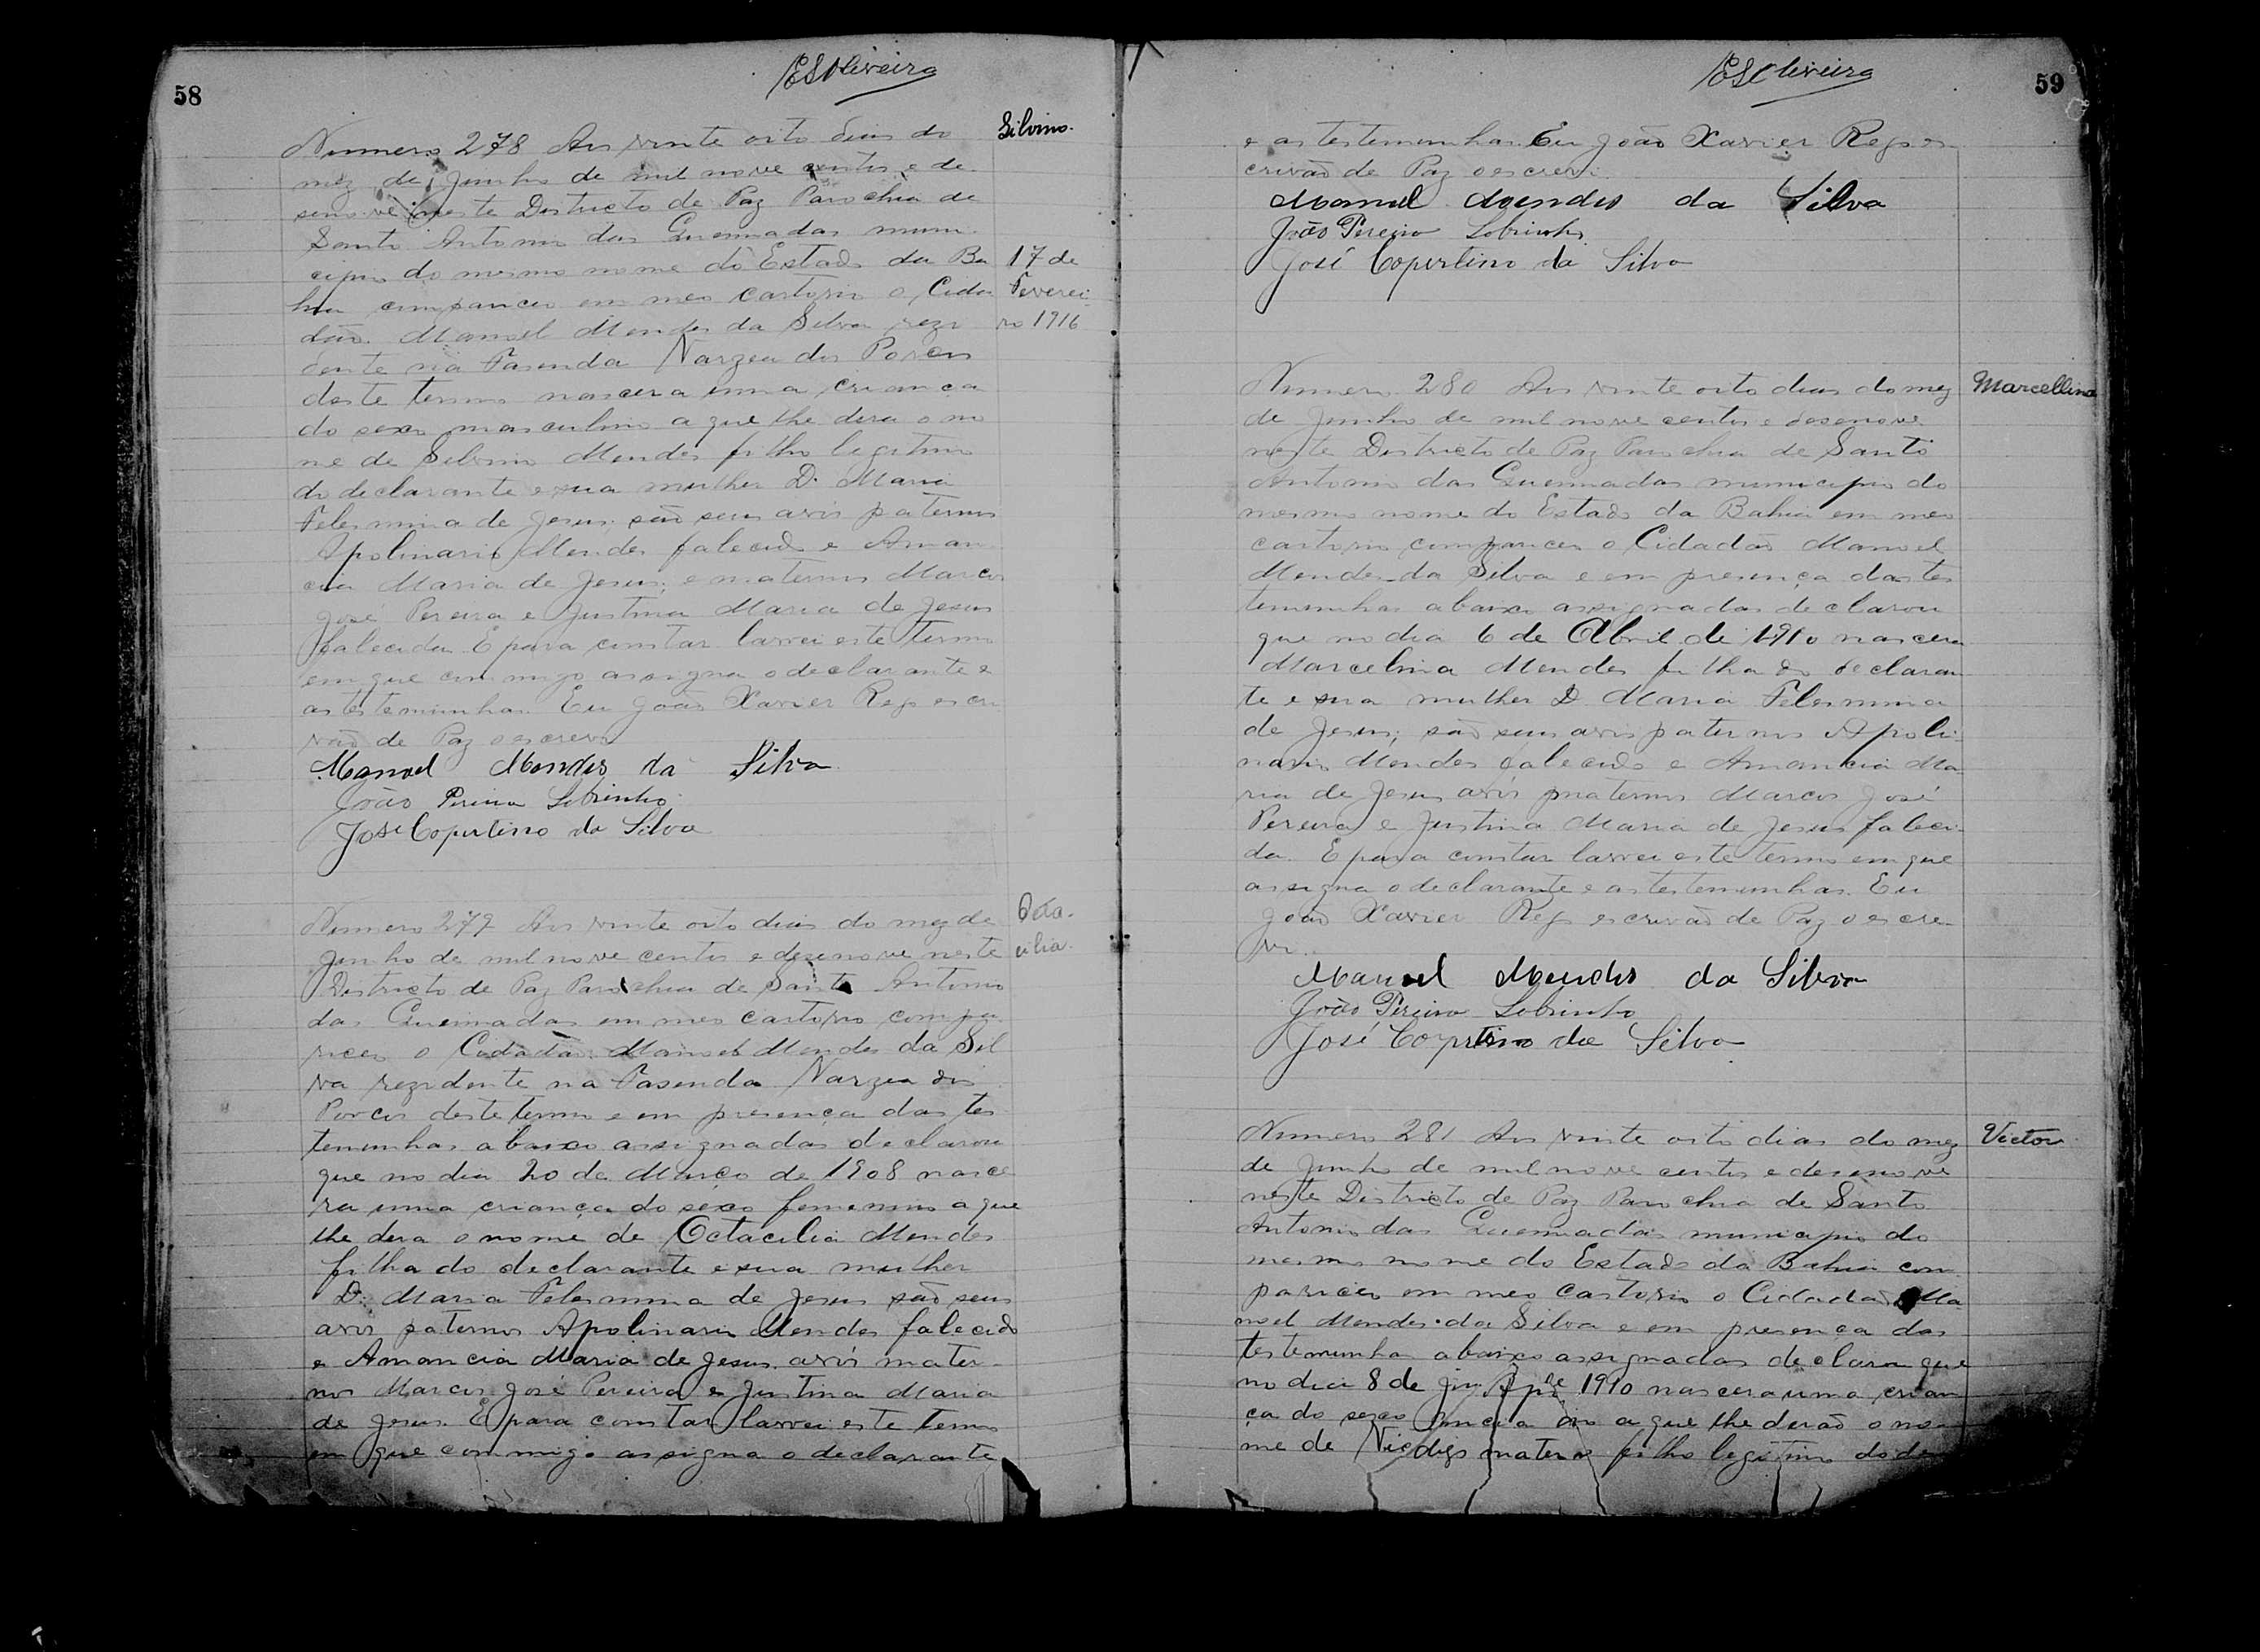 58
ESOliveira
Numero 278 Aos vinte oito dias do
Silvino.
mez de Junho de mil nove centos e de
senove neste Districto de Paz Parochia de
Santo Antonio das Queimadas muni
cipio do mesmo nome do Estado da Ba
17 de
hia compareceu em meo cartorio o Cida
Feverei
dão Manoel Mendes da Silva rezi
ro 1916
dente na Fasenda Varzea dos Porcos
deste termo nascera uma criança
do sexo masculino a que lhe dera o no
me de Silvino Mendes filho legitimo
do declarante e sua mulher D. Maria
Felesmina de Jesus; são seus avós paternos
Apolinario Mendes falecido e Aman
cia Maria de Jesus; e maternos Marcos
José Pereira e Justina Maria de Jesus
falecida E para constar lavrei este termo
em que commigo assigna o declarante e
as testemunhas. Eu João Xavier Rego escri
vão de Paz o escrevi
Manoel Mendes da Silva
João Pereira Sobrinho
José Copertino da Silva
Numero 279 Aos vinte oito dias do mez de
Octa-
Junho de mil nove centos e desenove neste
cilia.
Districto de Paz Parochia de Santo Antonio
das Queimadas em meo cartorio compa
receo o Cidadão Manoel Mendes da Sil
va rezidente na Fasenda Varzea dos
Porcos deste termo e em presença das tes
temunhas abaixo assignadas declarou
que no dia 20 de Março de 1908 nasce
ra uma criança do sexo femenino a que
lhe dera o nome de Octacilia Mendes
filha do declarante e sua mulher
D. Maria Felesmina de Jesus são seus
avós paternos Apolinario Mendes falecido
e Amancia Maria de Jesus avós mater-
nos Marcos José Pereira e Justina Maria
de Jesus. E para constar lavrei este termo
em que commigo assigna o declarante
ESOliveira
59
e as testemunhas. Eu João Xavier Rego es
crivão de Paz o escrevi.
Manoel Mendes da Silva
João Pereira Sobrinho
José Copertino da Silva
Numero 280 Aos vinte oito dias do mez
Marcellina
de Junho de mil nove centos e desenove
neste Districto de Paz Parochia de Santo
Antonio das Queimadas municipio do
mesmo nome do Estado da Bahia em meo
cartorio compareceu o Cidadão Manoel
Mendes da Silva e em presença das tes
temunhas abaixo assignadas declarou
que no dia 6 de Abril de 1910 nascera
Marcelina Mendes filha do declaran
te e sua mulher D. Maria Felesmina
de Jesus; são seus avós paternos Apoli-
nario Mendes falecido e Amancia Ma-
ria de Jesus avós maternos Marcos José
Pereira e Justina Maria de Jesus faleci-
da. E para constar lavrei este termo em que
assigna o declarante e as testemunhas. Eu
João Xavier Rego escrivão de Paz o escre-
vi.
Manoel Mendes da Silva
João Pereira Sobrinho
José Copertino da Silva
Numero 281 Aos vinte oito dias do mez
Victor
de Junho de mil nove centos e desenove
neste Districto de Paz Parochia de Santo
Antonio das Queimadas municipio do
mesmo nome do Estado da Bahia com
pareceo em meo Cartorio o Cidadão Ma
noel Mendes da Silva e em presença das
testemunhas abaixo assignadas declara que
no dia 8 de 1910 nascera uma crian
ça do sexo a que lhe derão o no-
me de filho legitimo do de